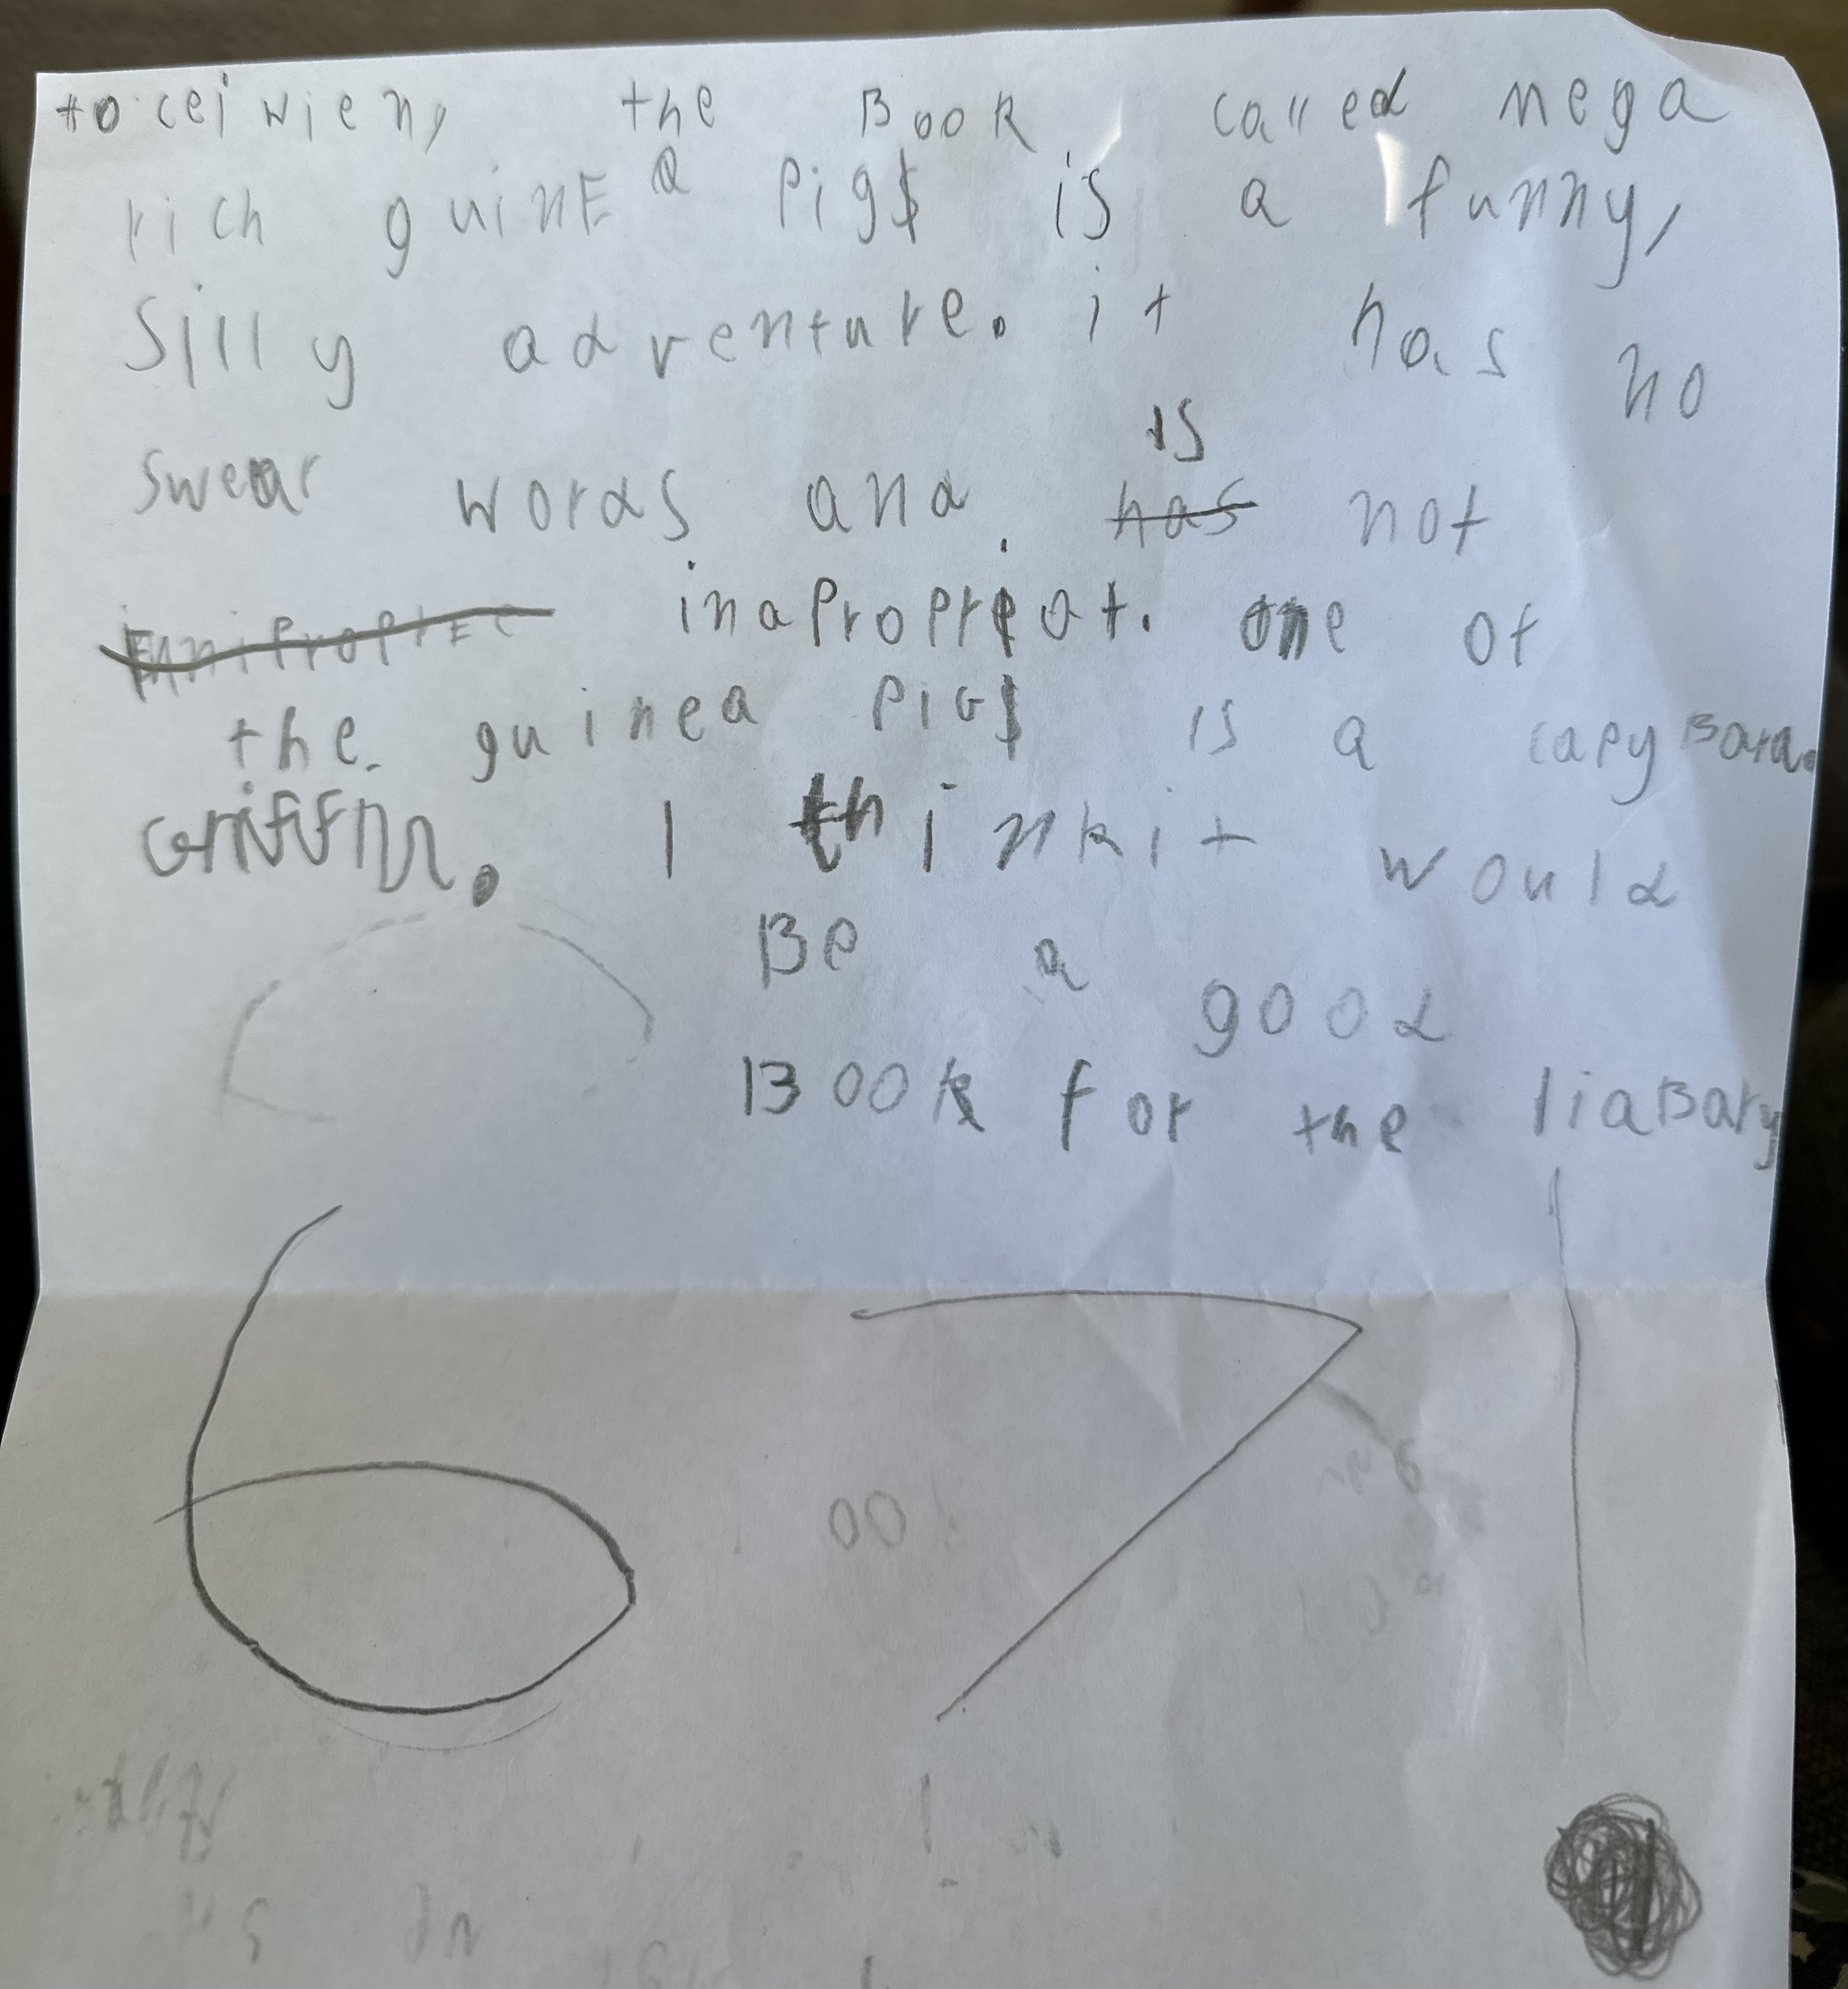 to ceiwien, the Book, called mega
rich guinEa Pig$ is a funny,
silly adventure. it has no
swear words and is not
inaPropriat. one of
the guinea PiG$ is a capyBara.
Griffin. I think it would
Be a good
Book for the liaBary
67